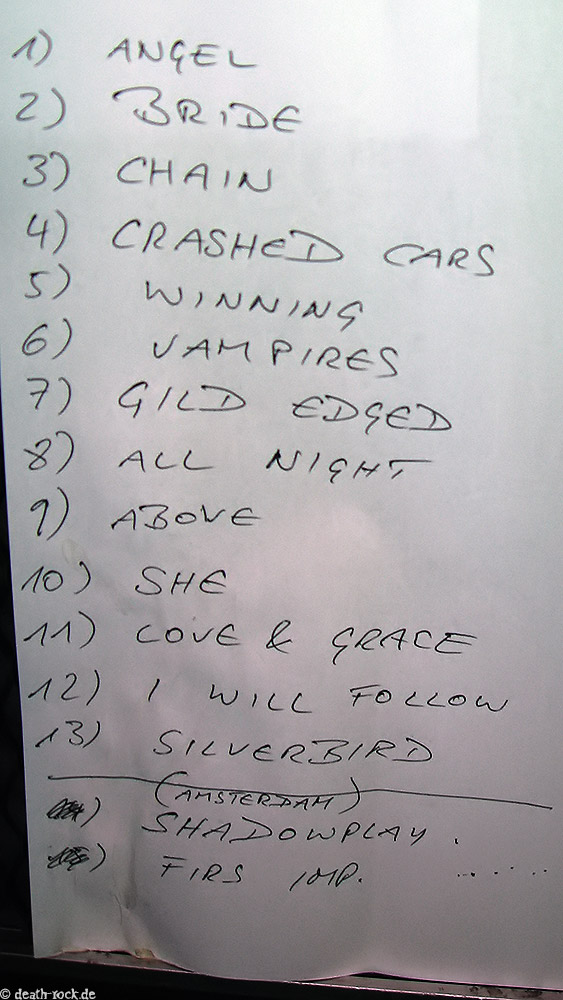 1) ANGEL
2) BRIDE
3) CHAIN
4) CRASHED CARS
5) WINNING
6) VAMPIRES
7) GILD EDGED
8) ALL NIGHT
9) ABOVE
10) SHE
11) LOVE & GRACE
12) I WILL FOLLOW
13) SILVERBIRD
(AMSTERDAM)
) SHADOWPLAY.
) FIRS IMP. ......
© death-rock.de